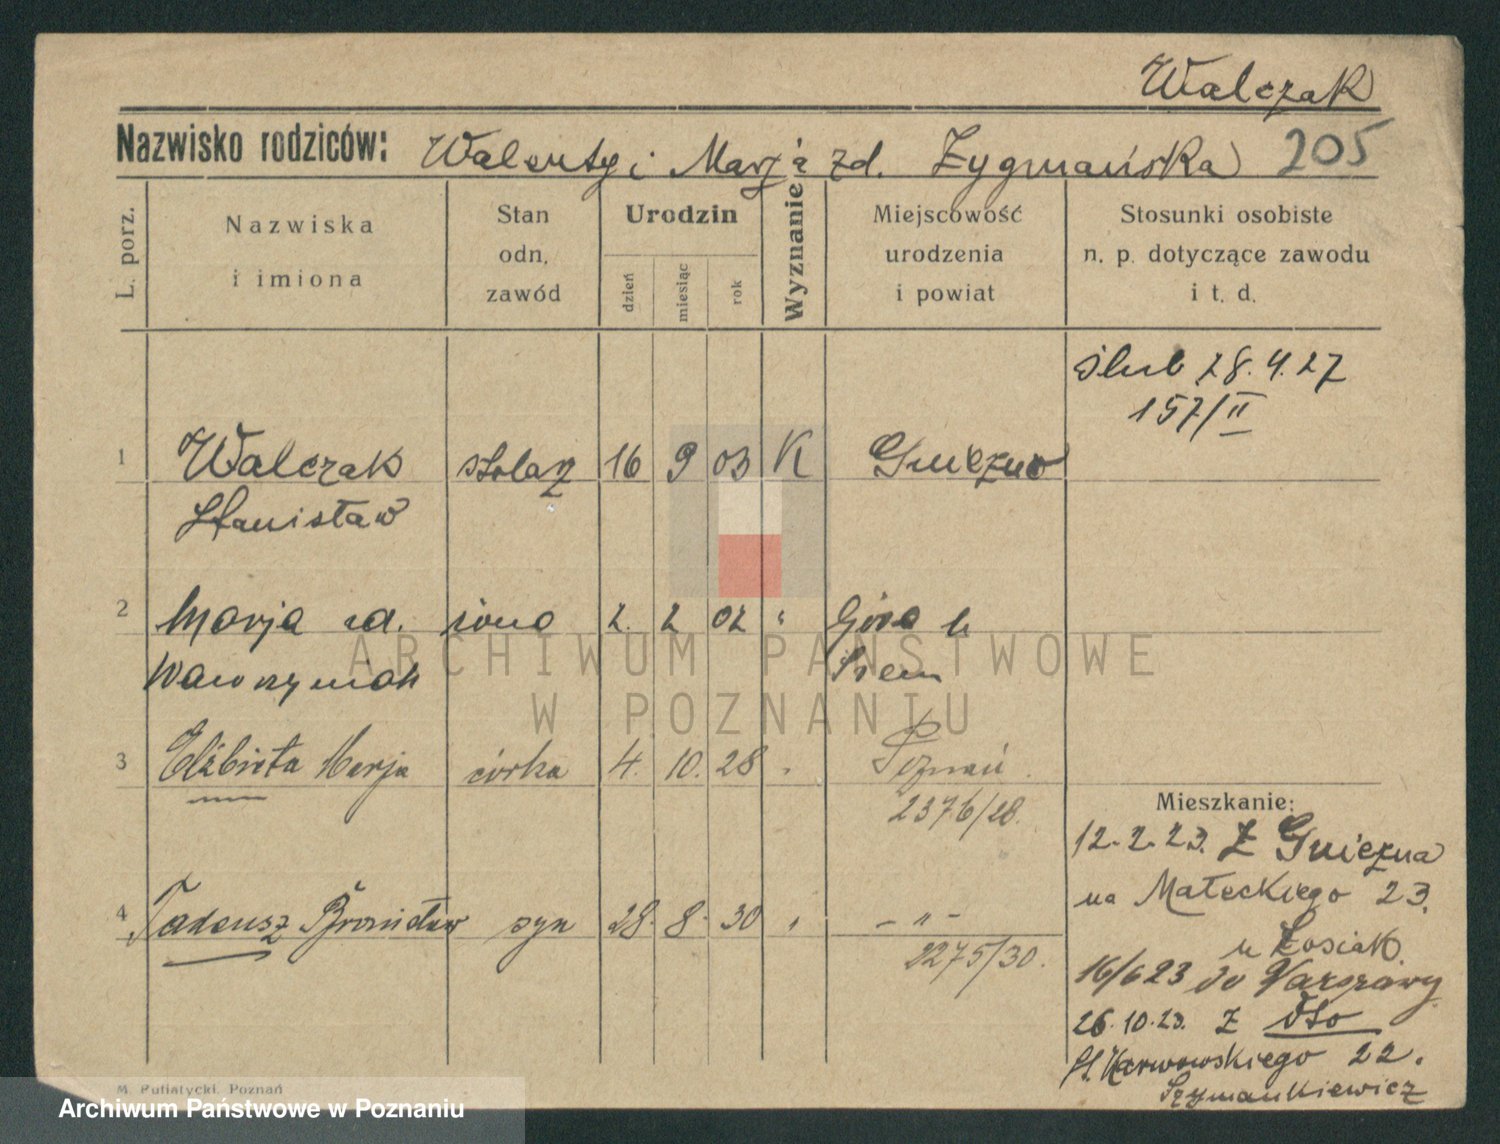 Walczak
Nazwisko rodziców: Walenty i Marja zd. Zygmańska 205
L. porz.
Nazwiska i imiona
Stan odn. zawód
Urodzin
dzień
miesiąc
rok
Wyznanie
Miejscowość urodzenia i powiat
Stosunki osobiste n. p. dotyczące zawodu i t. d.
ślub 28.4.27
157/II
1 Walczak stolarz 16 9 03 K Gniezno
Stanisław
2 Marja zd. żona 2. 2 02 " Góra
Wawrzyniak Śrem
3 Elżbieta Marja córka 4. 10. 28 " Poznań.
2376/28.
4 Tadeusz Bronisław syn 28. 8. 30 " – " –
2275/30.
Mieszkanie:
12.2.23. Z Gniezna
na Małeckiego 23.
u Łosiak.
16/6 23 do Warszawy
26.10.23. Z dto
St. Karwowskiego 22.
Szymankiewicz
M. Putiatycki, Poznań
ARCHIWUM PAŃSTWOWE
W POZNANIU
Archiwum Państwowe w Poznaniu